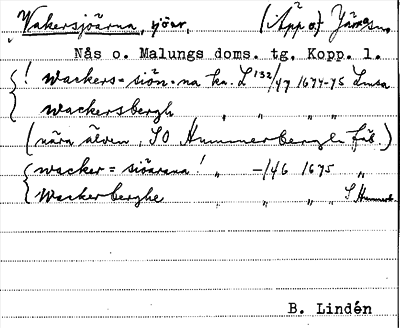 Wakersjöarna, sjöar, (Äpp o) Järna sn.
Nås o. Malungs doms. tg. Kopp. l.
! wackers=siön=na kr. L 132/47 1674-75
wackersbergh " " " "
(nära älven, SO Hummerbergh fäb.)
wacker=siöarana! " -/46 1675 "
wackerberghe " " " S
B. Lindén